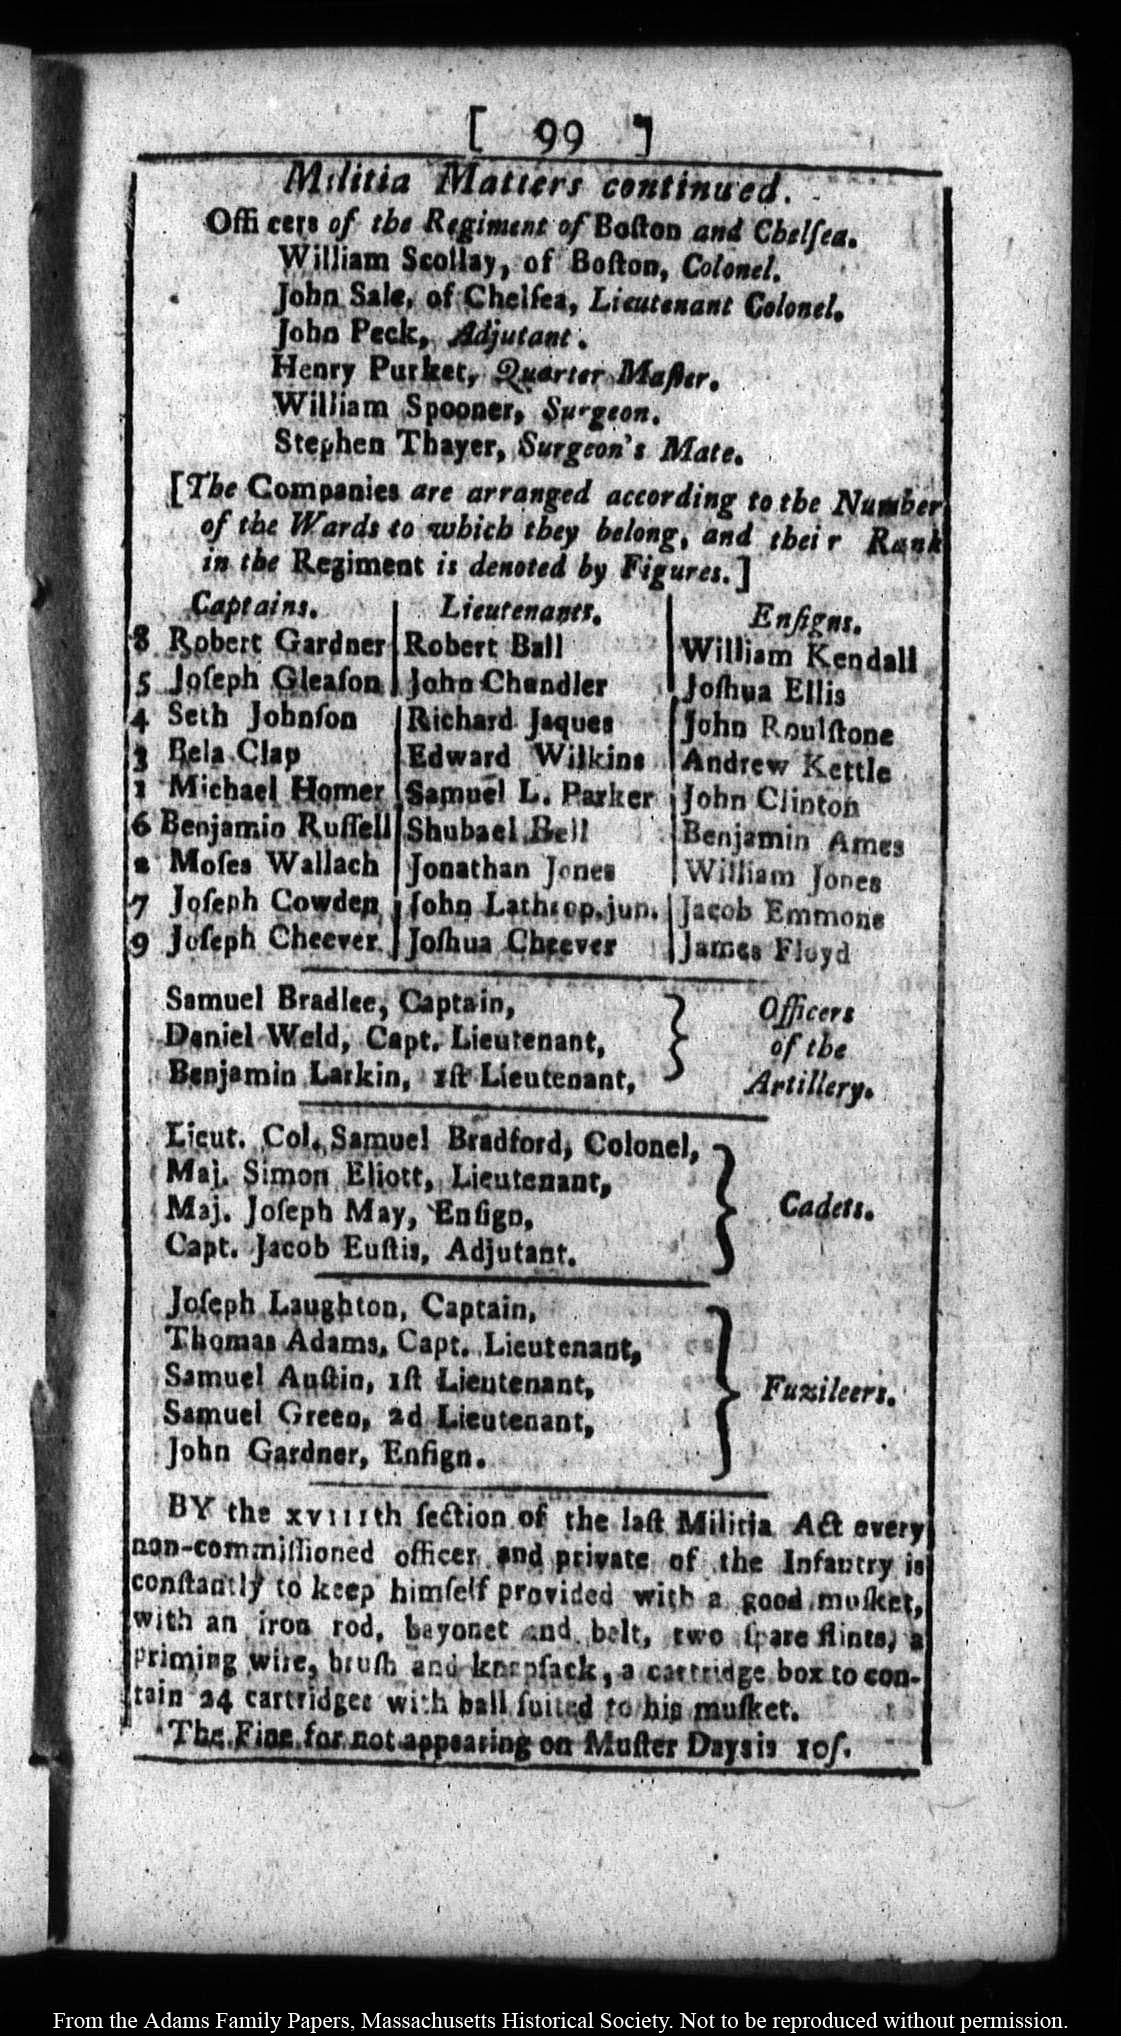 [ 99 ]
Militia Matters continued.
Offi cers of the Regiment of Boſton and Chelſea.
William Scollay, of Boſton, Colonel.
John Sale, of Chelſea, Lieutenant Colonel.
John Peck, Adjutant.
Henry Purket, Quarter Maſter.
William Spooner, Surgeon.
Stephen Thayer, Surgeon's Mate.
[The Companies are arranged according to the Number
of the Wards to which they belong, and thei r Rank
in the Regiment is denoted by Figures.]
Captains. Lieutenants. Enſigns.
8 Robert Gardner Robert Ball William Kendall
5 Joſeph Gleaſon John Chandler Joſhua Ellis
4 Seth Johnſon Richard Jaques John Roulſtone
3 Bela Clap Edward Wilkins Andrew Kettle
1 Michael Homer Samuel L. Parker John Clinton
6 Benjamin Ruſſell Shubael Bell Benjamin Ames
2 Moſes Wallach Jonathan Jones William Jones
7 Joſeph Cowden John Lathrop, jun. Jacob Emmons
9 Joſeph Cheever Joſhua Cheever James Floyd
Samuel Bradlee, Captain,
Daniel Weld, Capt. Lieutenant,
Benjamin Larkin, 1ſt Lieutenant,
Officers
of the
Artillery.
Lieut. Col. Samuel Bradford, Colonel,
Maj. Simon Eliott, Lieutenant,
Maj. Joſeph May, Enſign,
Capt. Jacob Euſtis, Adjutant.
Cadets.
Joſeph Laughton, Captain,
Thomas Adams, Capt. Lieutenant,
Samuel Auſtin, 1ſt Lieutenant,
Samuel Green, 2d Lieutenant,
John Gardner, Enſign.
Fuzileers.
BY the xviiith ſection of the laſt Militia Act every
non-commiſſioned officer and private of the Infantry is
conſtantly to keep himſelf provided with a good muſket,
with an iron rod, bayonet and belt, two ſpare flints, a
priming wire, bruſh and knapſack, a cartridge box to con-
tain 24 cartridges with ball ſuited to his muſket.
The Fine for not appearing on Muſter Days is 10ſ.
From the Adams Family Papers, Massachusetts Historical Society. Not to be reproduced without permission.